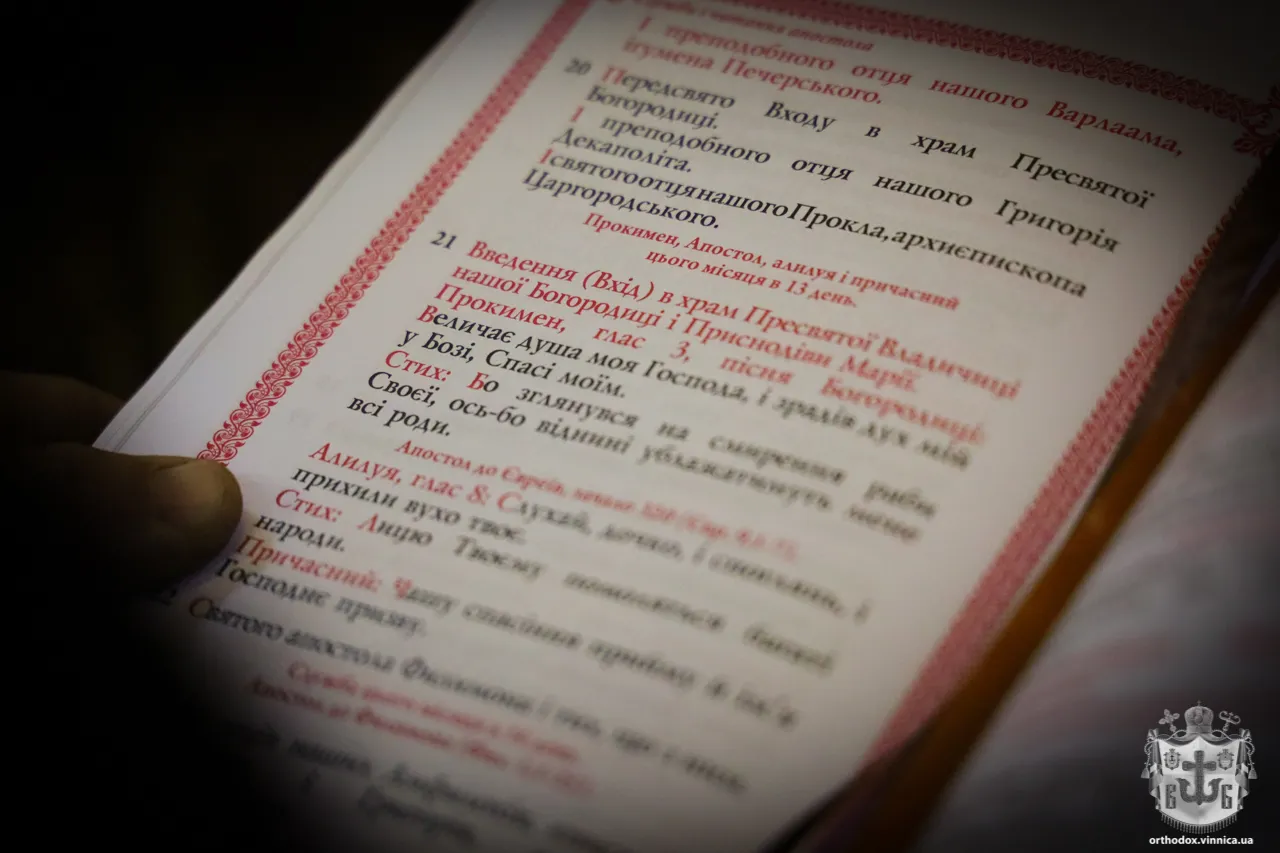 І преподобного отця нашого Варлаама,
ігумена Печерського.
20 Передсвято Входу в храм Пресвятої
Богородиці.
І преподобного отця нашого Григорія
Декаполіта.
І святого отця нашого Прокла, архиєпископа
Царгородського.
Прокимен, Апостол, алилуя і причасний
цього місяця в 13 день.
21 Введення (Вхід) в храм Пресвятої Владичиці
нашої Богородиці і Приснодіви Марії.
Прокимен, глас 3, пісня Богородиці:
Величає душа моя Господа, і зрадів дух мій
у Бозі, Спасі моїм.
Стих: Бо зглянувся на смирення раби
Своєї, ось-бо віднині ублажатимуть мене
всі роди.
Апостол до Євреїв,
Алилуя, глас 8: Слухай, дочко, і споглянь, і
прихили вухо твоє.
Стих: Лицю Твоєму помоляться багаті
народи.
Причасний: Чашу спасіння прийму й ім'я
Господнє призву.
Святого апостола Филимона і тих, що з ним.
Служба цього місяця
Апостол до Филимона
В Б
orthodox.vinnica.ua